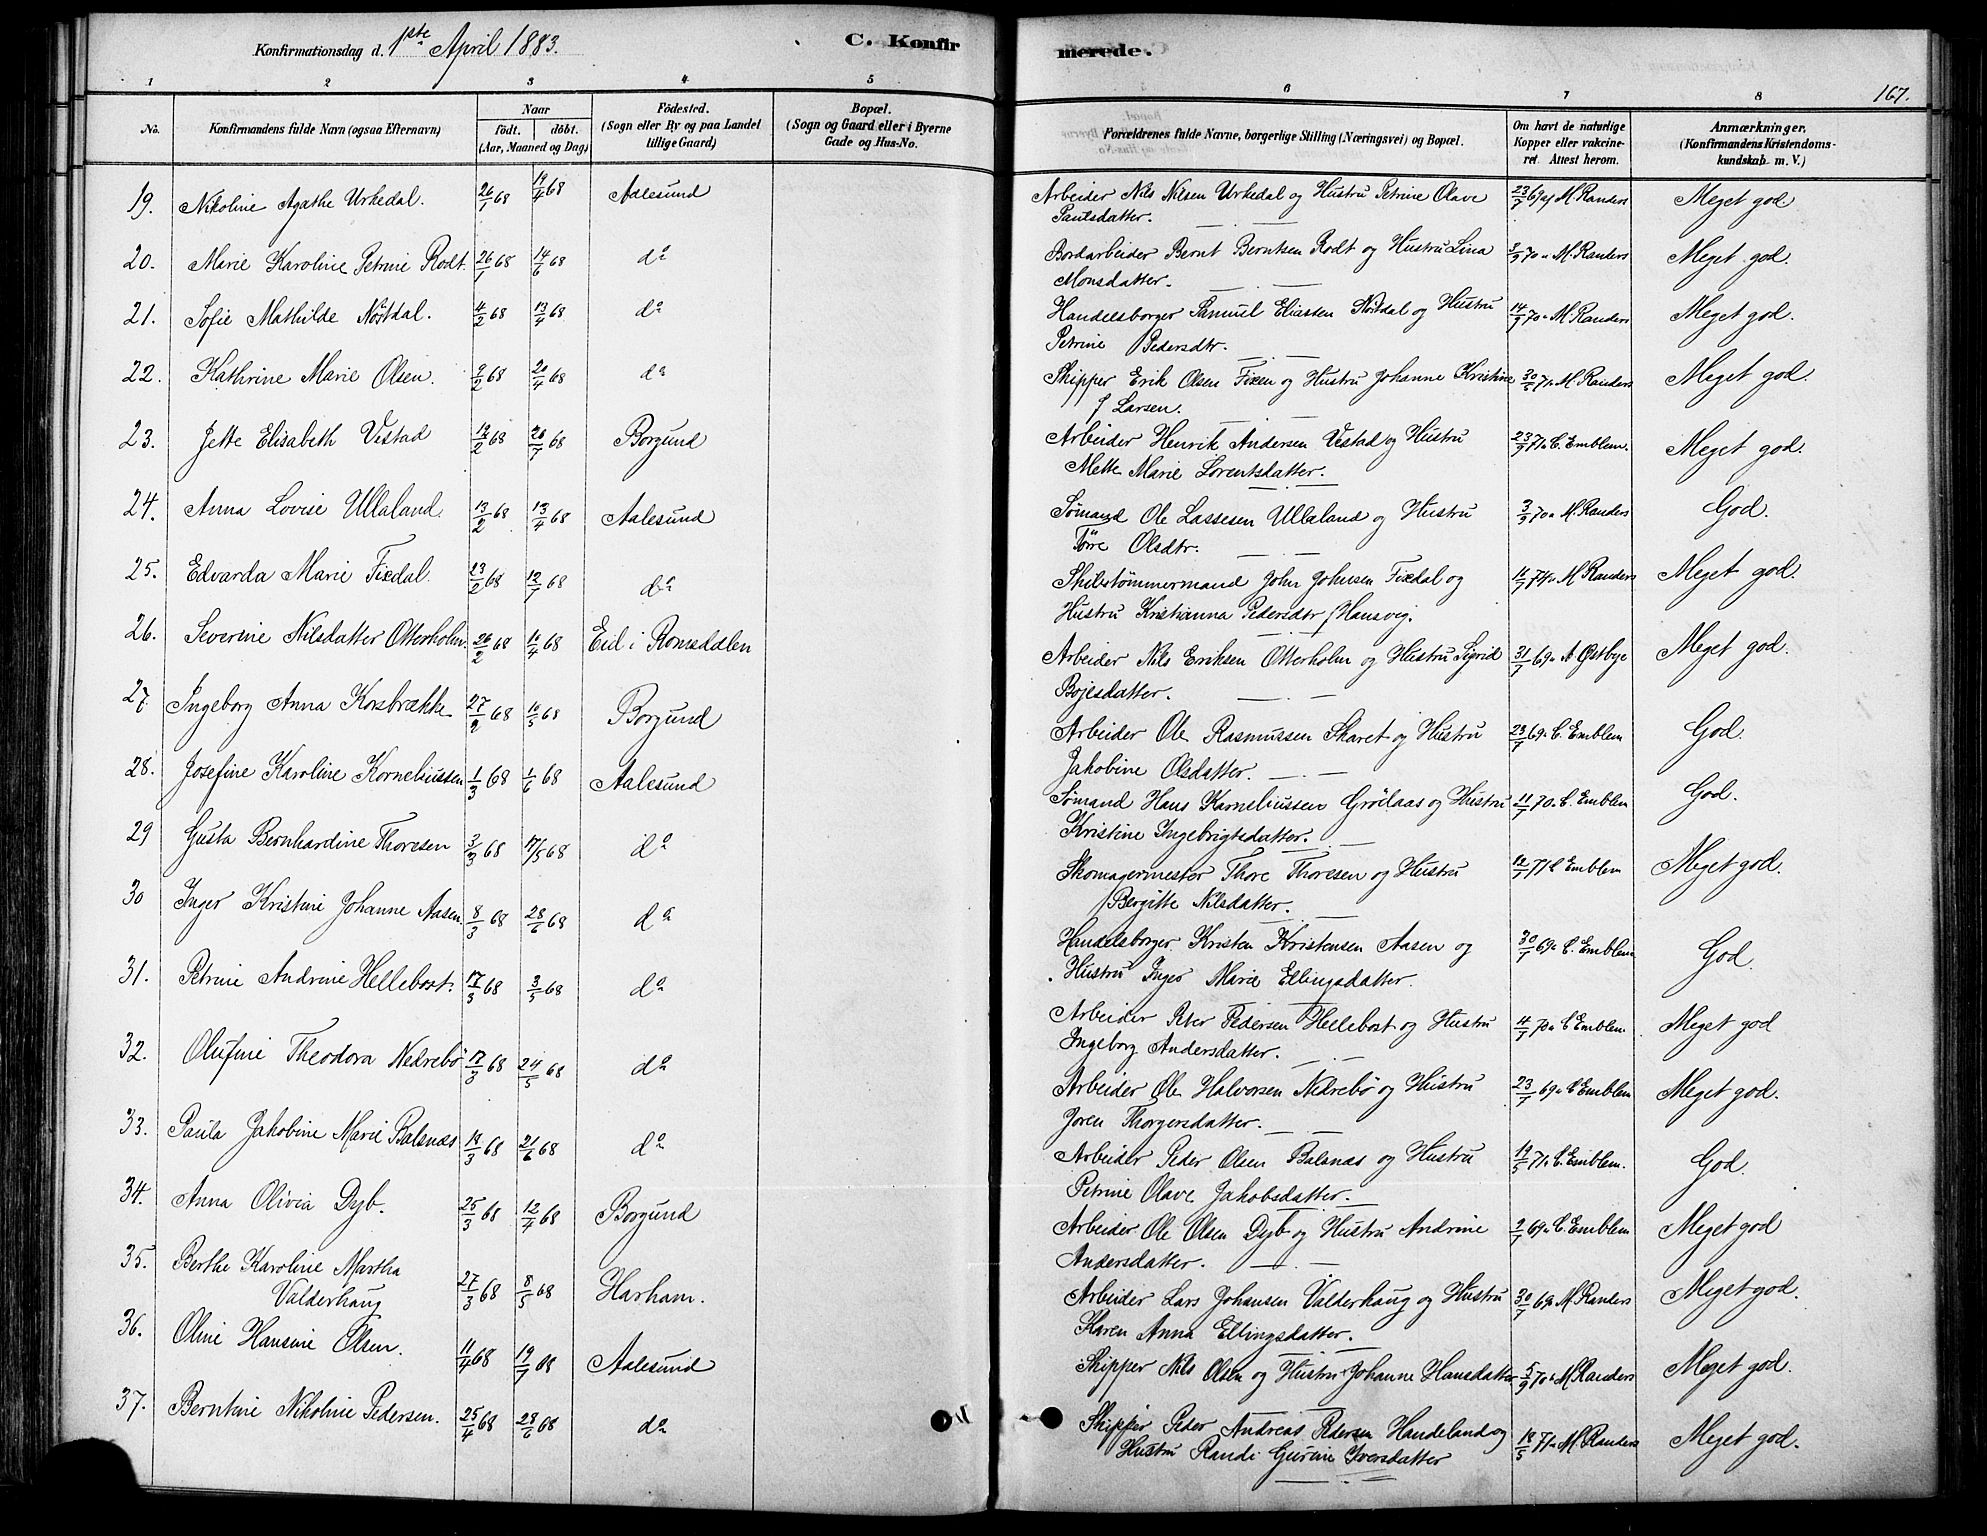 Konfirmationsdag d. 1ste April 1883.
C. Konfir
merede.
167.
1 2 3 4 5 6 7 8
No.
Konfirmandens fulde Navn (ogsaa Efternavn)
Naar
født. døbt.
(Aar, Maaned og Dag)
Fødested.
(Sogn eller By og paa Landet
tillige Gaard)
Bopæl.
(Sogn og Gaard eller i Byerne
Gade og Hus-No.
Forældrenes fulde Navne, borgerlige Stilling (Næringsvei) og Bopæl.
Om havt de naturlige
Kopper eller vakcine-
ret. Attest herom.
Anmærkninger,
(Konfirmandens Kristendoms-
kundskab m. V.)
19. Nikoline Agathe Urkedal. 26/1 68 14/4 68 Aalesund Arbeider Nils Nilsen Urkedal og Hustru Petrine Olave M. Randers Meget god
Paulsdatter.
20. Marie Karoline Petrine Rodt. 26/1 68 14/6 68 do Bordarbeider Bernt Berntsen Rodt og Hustru Lina 3/9 70 M. Randers Meget god.
Monsdatter.
21. Sofie Mathilde Nøstdal. 4/2 68 13/4 68 do Handelsborger Samuel Eliassen Nøstdal og Hustru 14/9 70 M. Randers Meget god.
Petrine Pedersdtr.
22. Kathrine Marie Olsen. 9/2 68 20/4 68 do Skipper Erik Olsen Fixen og Hustru Johanne Kristine 30/5 71 M. Randers Meget god.
f Larsen.
23. Jette Elisabeth Vestad 12/2 68 26/7 68 Borgund Arbeider Henrik Andersen Vestad og Hustru 23/9 71 C. Emblem. Meget god.
Mette Marie Lorentsdatter.
24. Anna Lovise Ullaland. 13/2 68 13/4 68 Aalesund Sømand Ole Lassesen Ullaland og Hustru 3/9 70 M. Randers God.
Olsdtr.
25. Edvarda Marie Fixdal. 23/2 68 12/7 68 do Skibstømmermand John Johnsen Fixdal og 11/7 74 M Randers Meget god.
Hustru Kristianna Pedersdtr f Hansvig.
26. Severine Nilsdatter Otterholm. 26/2 68 10/4 68 Eid i Romsdalen Arbeider Nils Eriksen Otterholm og Hustru Sigrid 31/7 69 A. Østbye Meget god.
Bojesdatter.
27. Ingeborg Anna Korsbrække 27/2 68 10/5 68 Borgund Arbeider Ole Rasmussen Skaret og Hustru 23/7 69 C. Emblem God.
Jakobine Olsdatter.
28. Josefine Karoline Korneliussen 1/3 68 1/6 68 Aalesund Sømand Hans Korneliussen Grødaas og Hustru 11/7 70 C. Emblem God.
Kristine Ingebrigtsdatter.
29 Gusta Bernhardine Thoresen 3/3 68 17/5 68 do Skomagermester Thore Thoresen og Hustru 12/7 71 C Emblem Meget god.
Bergitte Nilsdatter.
30 Inger Kristine Johanne Aasen 8/3 68 28/6 68 do Handelsborger Kristen Kristensen Aasen og 30/7 69 C. Emblem God.
Hustru Inger Marie Ellingsdatter.
31. Petrine Andrine Hellebost. 17/3 68 3/5 68 do Arbeider Peter Pedersen Hellebost og Hustru 4/7 70 C Emblem Meget god
Ingeborg Andersdatter.
32. Olufine Theodora Nedrebø 17/3 68 24/5 68 do Arbeider Ole Halvorsen Nedrebø og Hustru 23/7 69 C Emblem Meget god.
Joren Thorgersdatter.
33. Paula Jakobine Marie Balsnæs 18/3 68 21/6 68 do Arbeider Peder Olsen Balsnæs og Hustru 19/5 71 C. Emblem. God.
Petrine Olave Jakobsdatter.
34. Anna Olivia Dyb. 25/3 68 12/4 68 Borgund Arbeider Ole Olsen Dyb og Hustru Andrine 2/7 69 C. Emblem Meget god
Andersdatter.
35. Berthe Karoline Martha 27/3 68 8/5 68 Harham. Arbeider Lars Johansen Valderhaug og Hustru 30/7 69 M Randers Meget god.
Valderhaug Karen Anna Ellingsdatter.
36. Oline Hansine Olsen. 11/4 68 19/7 68 Aalesund Skipper Nils Olsen og Hustru Johanne Hansdatter 5/9 70 M Randers Meget god.
37. Berntine Nikoline Pedersen. 25/4 68 28/6 68 do Skipper Peder Andreas Pedersen Handeland og 18/5 71 M. Randers Meget god.
Hustru Randi Gurine Iversdatter